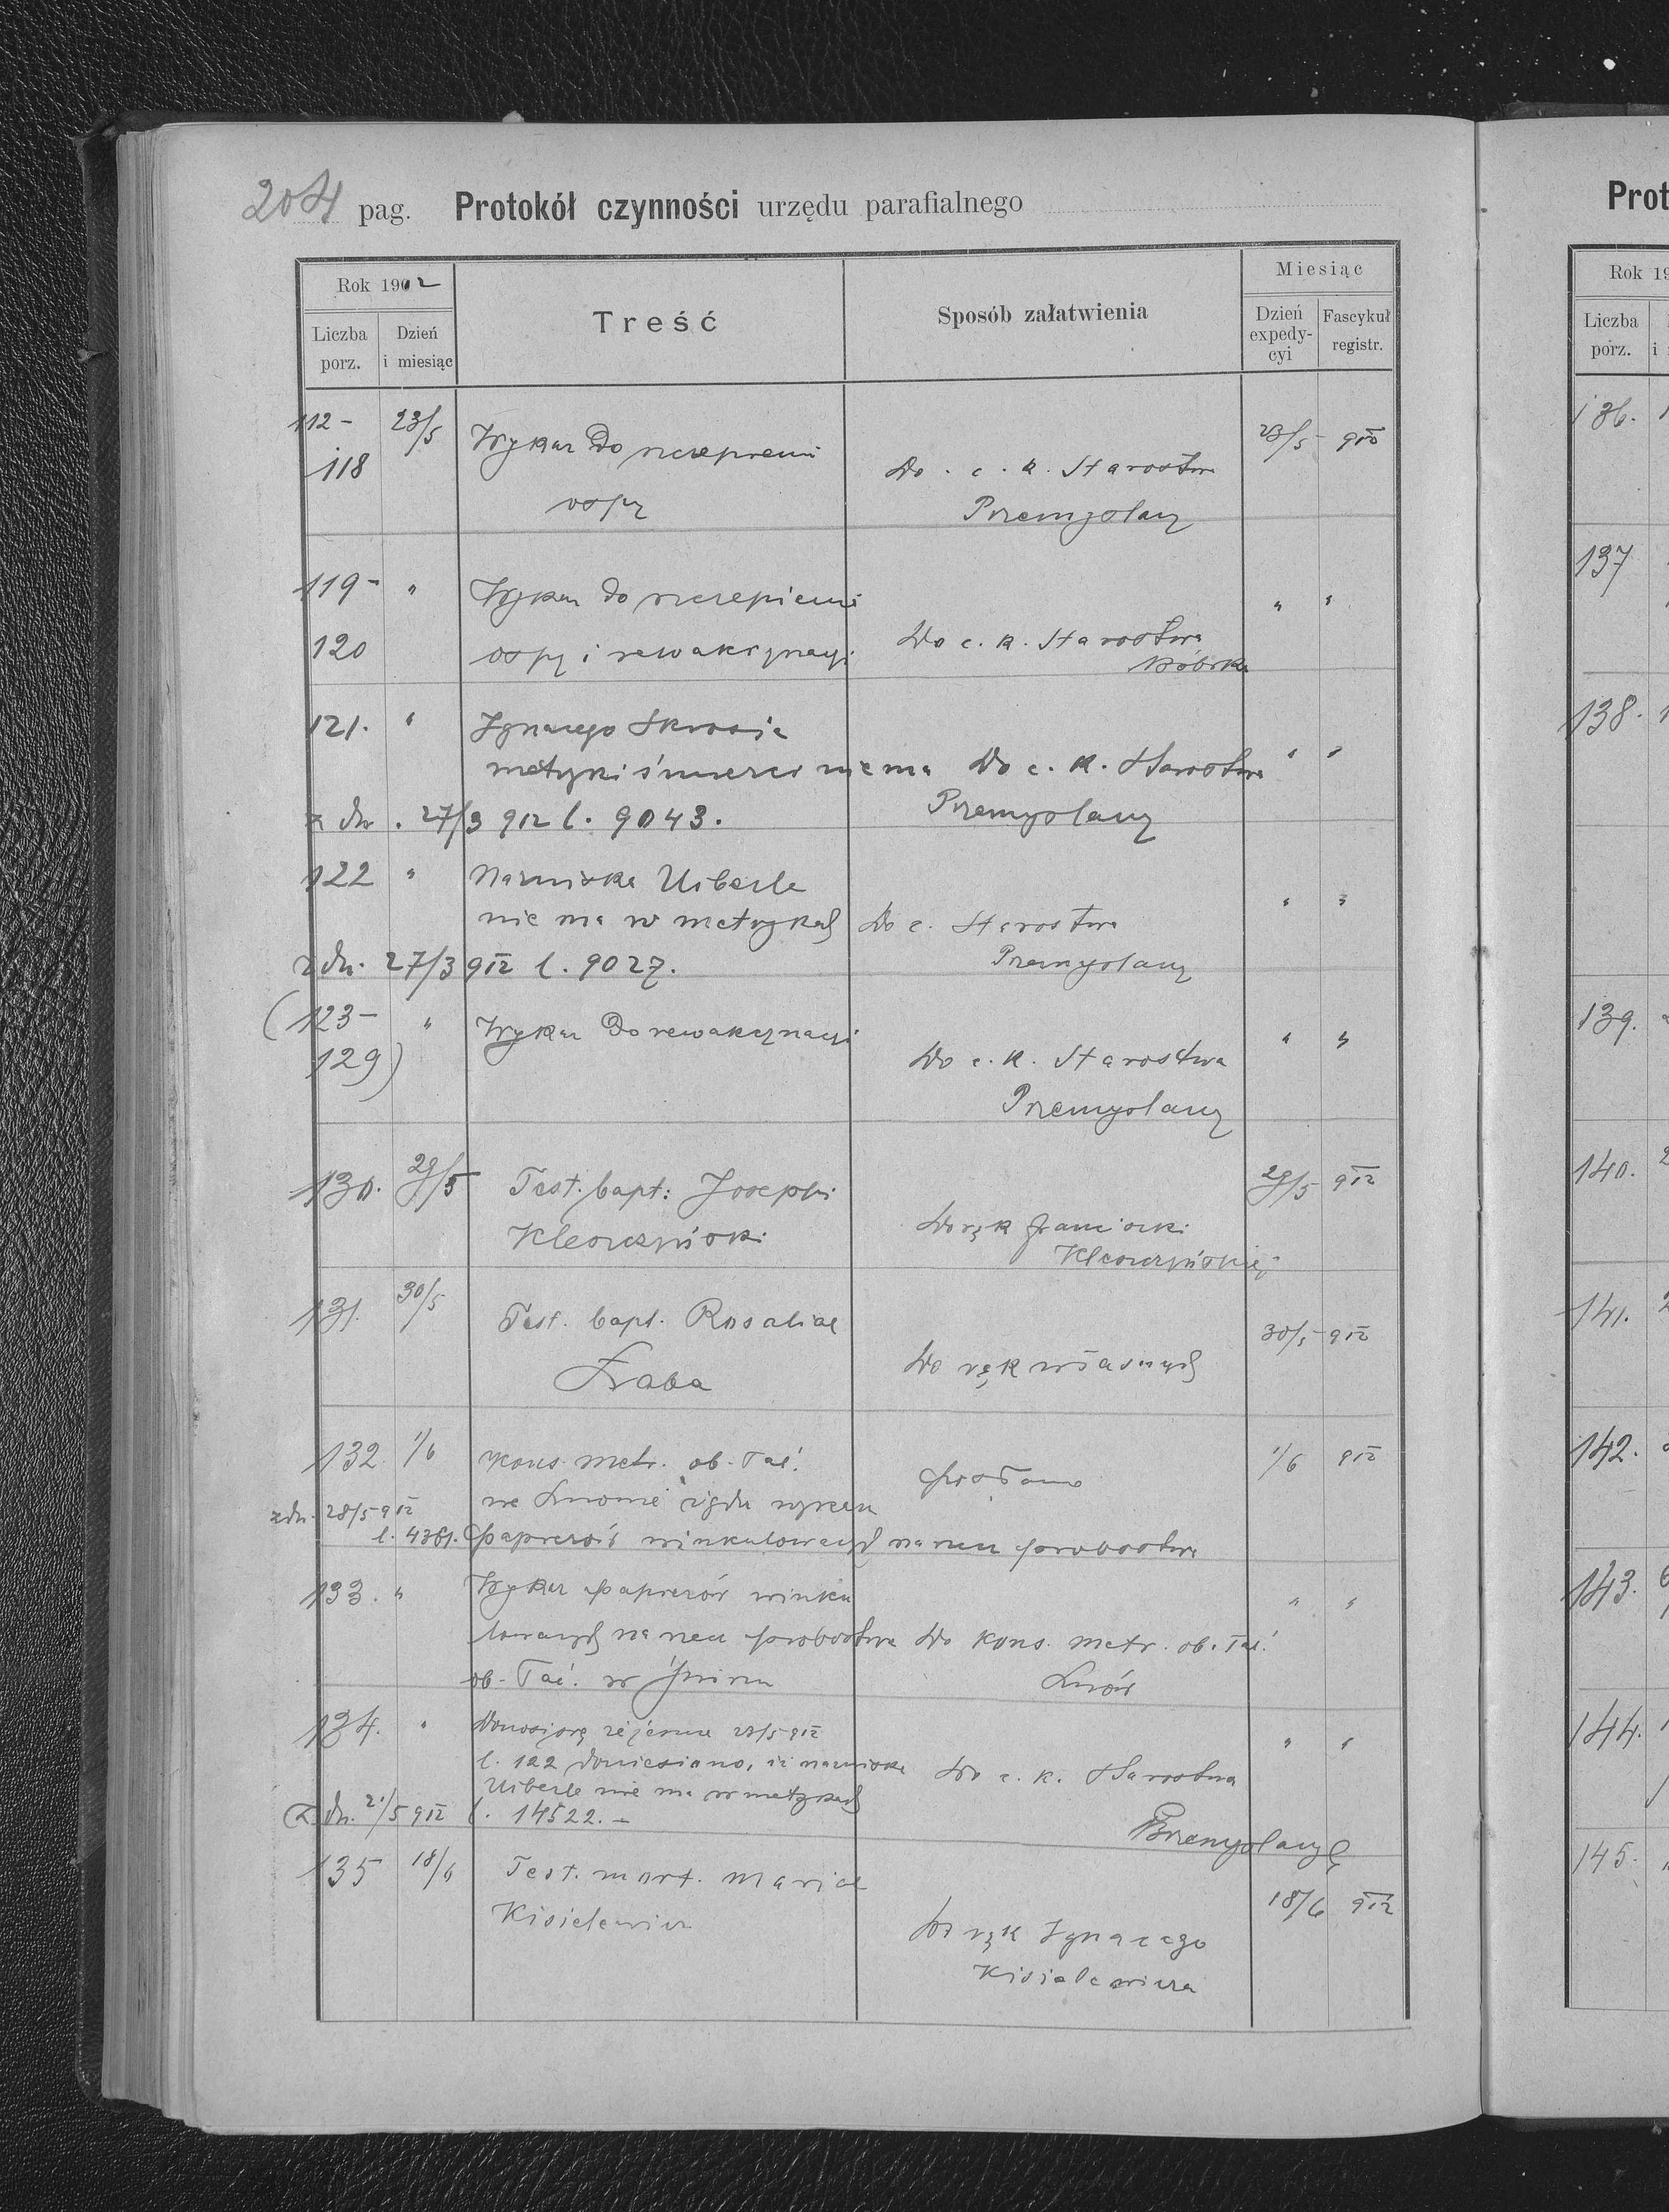 204 pag. Protokół czynności urzędu parafialnego
Rok 1902
Liczba porz.
Dzień i miesiąc
Treść
Sposób załatwienia
Miesiąc
Dzień expedycyi
Fascykuł registr.
112-118 23/5 Wykaz do szczepienia
ospy
Do c. k. Starostwa
Przemyślany
23/5 912
119-120 " Wykaz do szczepienia
ospy i rewakcynacyi
Do c. k. Starostwa
Bóbrka
" "
121. " Ignacego
metryki śmierci nie ma Do c. k. Starostwa
z dn. 27/3 912 l. 9043. Przemyślany
" "
122 " Nazwiska Uiberle
nie ma w metrykach Do c. Starostwa
z dn. 27/3 912 l. 9027. Przemyślany
" "
(123-129) " Wykaz do rewakcynacyi
Do c. k. Starostwa
Przemyślany
" "
130. 29/5 Test. bapt: Josephi
Kleszczyński
Do rąk Franciszki
Kleszczyńskiej
29/5 912
131. 30/5 Test. bapt. Rosaliae
Żaba
Do rąk własnych
30/5 912
132 1/6 Kons. metr. ob. łać.
we Lwowie żąda wykazu
z dn. 28/5 912
l. 4361. papierów winkulowanych na rzecz probostwa
posłano
1/6 912
133. " Wykaz papierów winku
lowanych na rzecz probostwa Do Kons. metr. ob. łać.
ob. łać. w
Lwów
" "
134. " Donoszę, że jeszcze 23/5 912
l. 122 doniesiono, iż nazwiska
Uiberle nie ma w metrykach
z dn. 21/5 912 l. 14522. -
Do c. k. Starostwa
Przemyślany
" "
135 18/6 Test. mort. Mariae
Kisielewicz
Do rąk Ignacego
Kisielewicza
18/6 912
Prot
Rok 19
Liczba porz.
i
136.
137
138.
139.
140.
141.
142.
143.
144.
145.